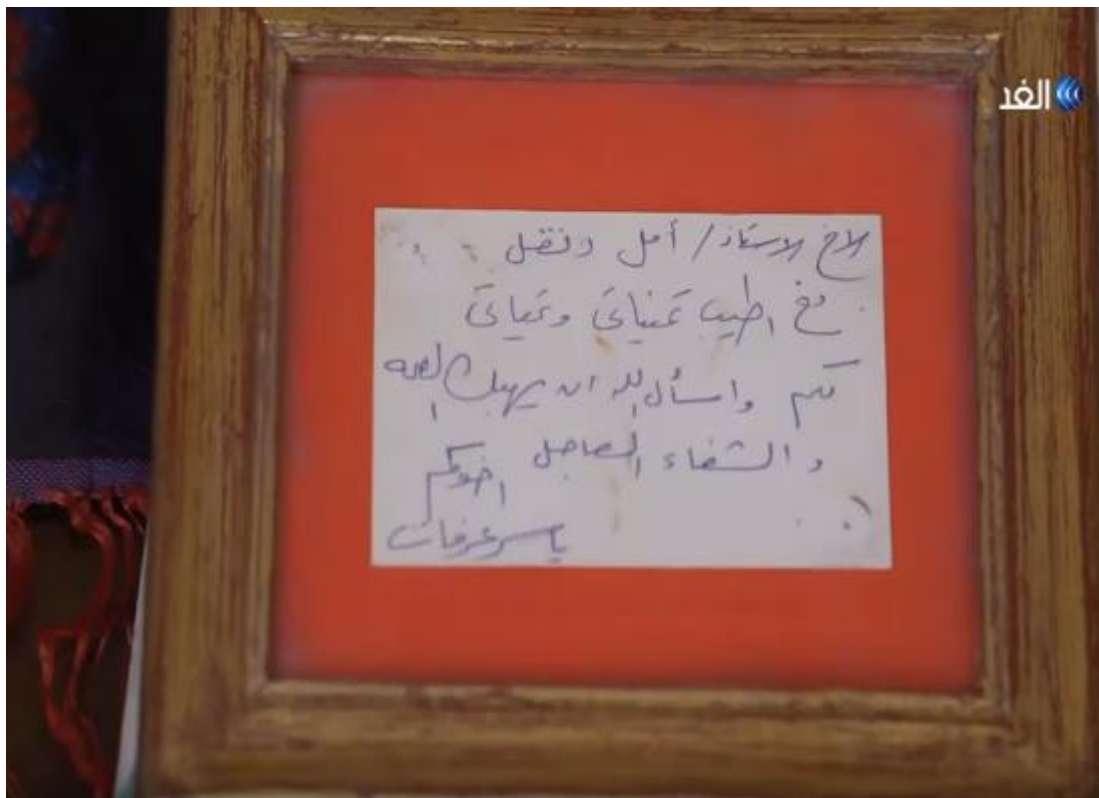 الغد
الاخ الاستاذ/ أمل دنقل
مع اطيب تمنياتى وتحياتى
لكم واسأل الله ان يهبك الصحه
و الشفاء العاجل
اخوكم
ياسر عرفات